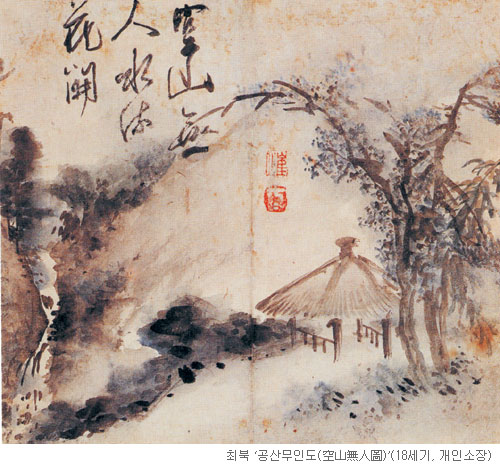 空山無
人水流
花開
최북 '공산무인도(空山無人圖)'(18세기, 개인소장)